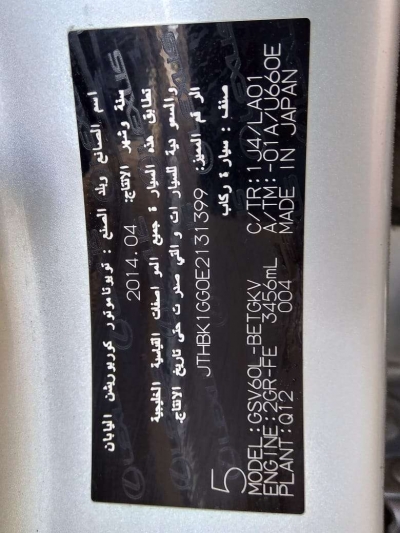 اسم الصانع وبلد الصنع : تويوتا موتور كوربوريشن اليابان
سنة وشهر الانتاج: 2014.04
تطابق هذه السيارة جميع المواصفات القياسية الخليجية
والسعودية للسيارات والتي صدرت حتى تاريخ الانتاج.
الرقم المميز: JTHBK1GG0E2131399
صنف : سيارة ركاب
5
MODEL:GSV60L-BETGKV C/TR:1J4/LA01
ENGINE:2GR-FE 3456mL A/TM:-01A/U660E
PLANT:Q12 004 MADE IN JAPAN